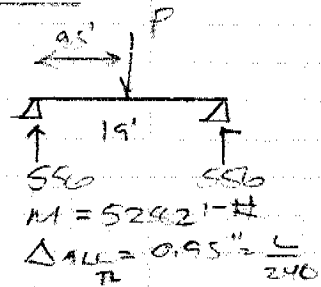 P
9.5'
19'
556 556
M = 5282'-#
Δ ALL TL = 0.95" = L/240